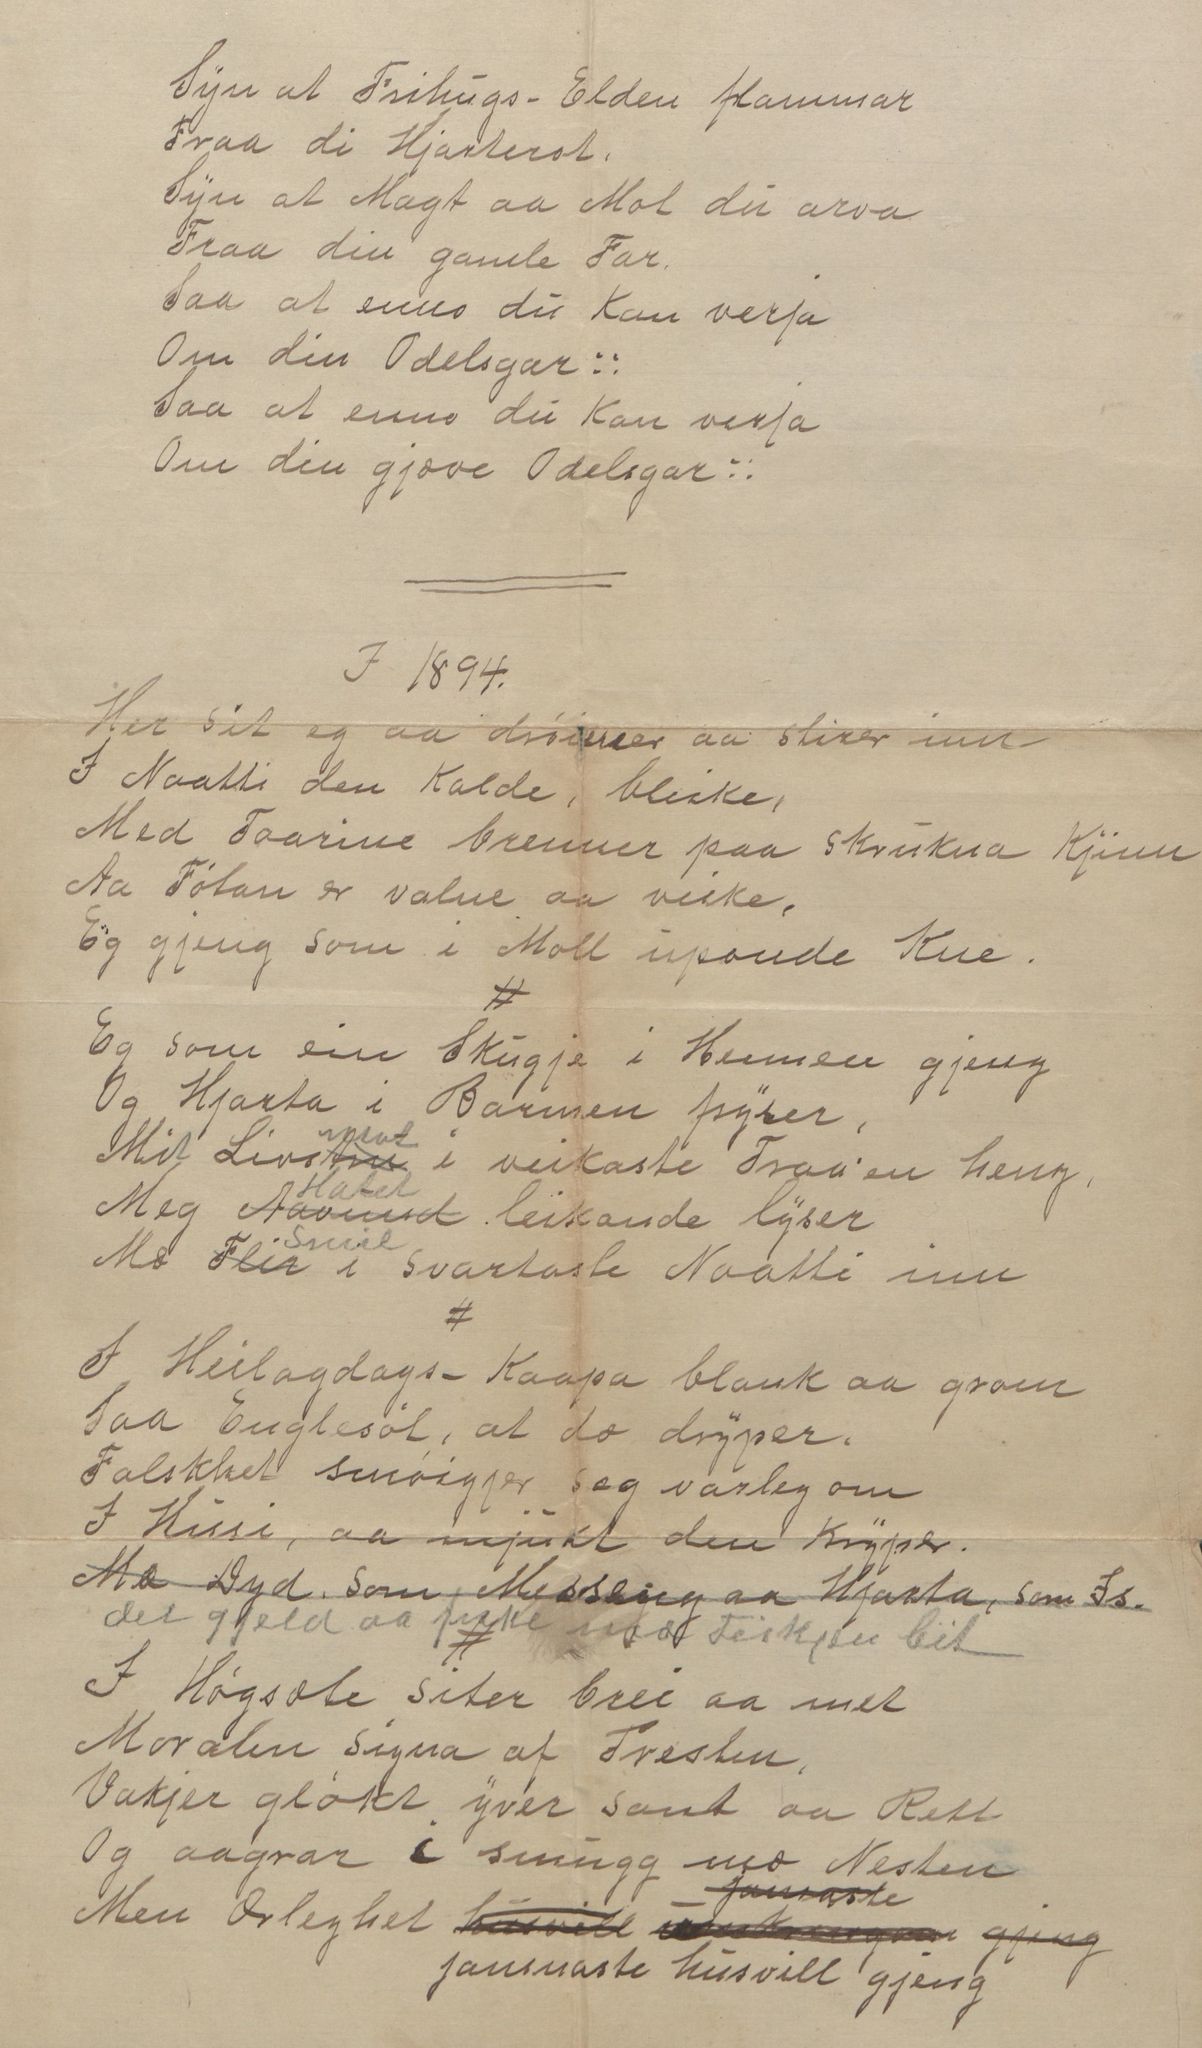 Syn at Frihugs-Elden flammar
Fraa di Hjarterot.
Syn at Magt aa Mot du arva
Fraa din gamle Far.
Saa at enno du kan verja
Om din Odelsgar :::
Saa at enno du kan verja
Om din gjæve Odelsgar :::
I 1894.
Her sit eg aa drøimer aa stirer inn
I Naatti den kalde, bleike,
Med Taarine brenner paa skrukna Kjinn
Aa Fötan er valne aa veike,
Eg gjeng som i Moll upaude Kne.
#
Eg som ein Skugje i Heimen gjeng
Og Hjarta i Barmen fryser,
mot
Mit Livstru i veikaste Traa'en heng,
Hatet
Meg Aavund leikande lyser
Smil
Mæ Flir i svartaste Naatti inn
#
I Heilagdags-Kaapa blank aa gram
Saa Englesöt, at dæ dryper.
Falskhet smöigjer seg varleg om
I Husi, aa mjukt den kryper.
Mæ Dyd som Messeng aa Hjarta, som Is.
det gjeld aa fiske Feiskjen bit
#
I Högsæte siter brei aa met
Moralen signa af Presten,
Vakjer glökt yver sant aa Rett
Og aagrar i smugg mæ Nesten
jamnaste
Men Ærleghet husvill gjeng
jamnaste husvill gjeng